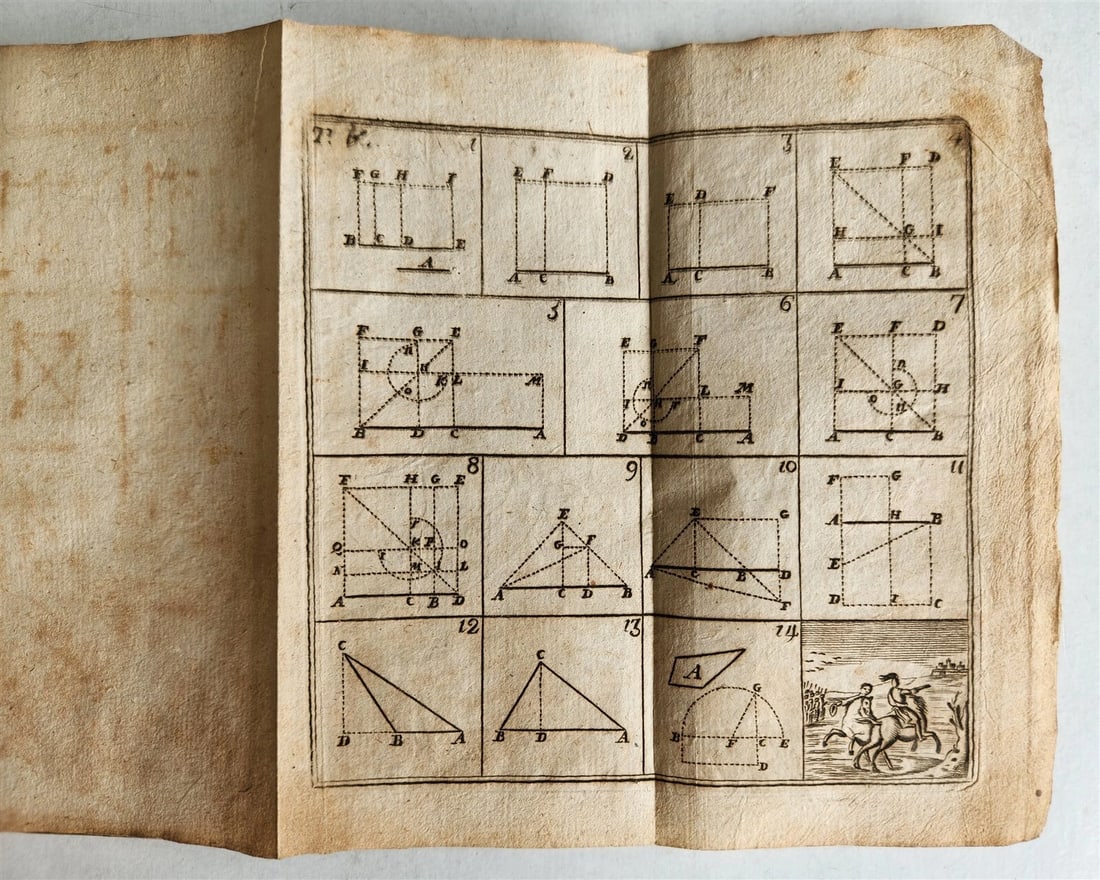 1
F G H I
B C D E
A
2
E F D
A C B
3
E D F
A C B
4
E F D
H G I
A C B
5
F G E
I H K L M
B D C A
6
E G F
L M
D B C A
7
E F D
I G H
A C B
8
F H G E
Q O
N M L
A C B D
9
E
G F
A C D B
10
E G
A C B D
F
11
F G
A H B
E
D I C
12
C
D B A
13
C
B D A
14
A
G
B F C E
D